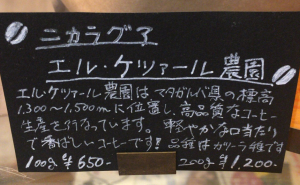 ニカラグア
エル・ケツァール農園
エル・ケツァール農園はマタガルパ県の標高
1,300〜1,500mに位置し、高品質なコーヒー
生産を行なっています。軽やかな口当たり
で香ばしいコーヒーです! 品種はカツーラ種です
100g ¥650- 200g ¥1,200-